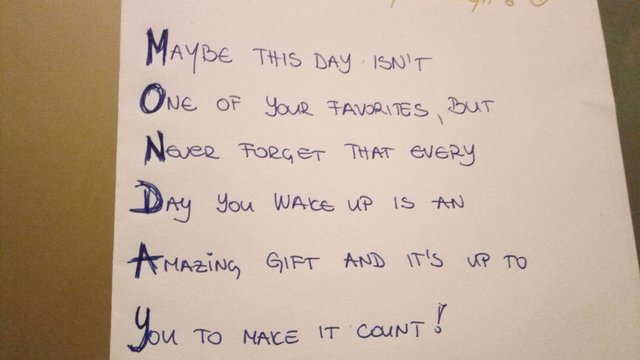 MAYBE THIS DAY ISN'T
ONE OF YOUR FAVORITES, BUT
NEVER FORGET THAT EVERY
DAY YOU WAKE UP IS AN
AMAZING GIFT AND IT'S UP TO
YOU TO MAKE IT COUNT!